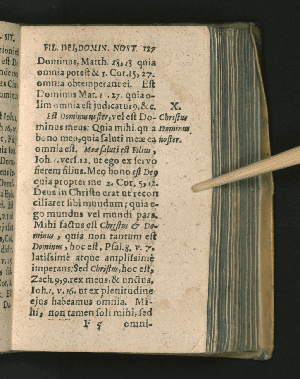 FIL. DEI, DOMIN. NOST. 127
Dominus, Matth. 28, 18 quia
omnia potest & 3. Cor. 15, 27.
omnia obtemperant ei. Est
Dominus Mat. 1. 27. quia o-
lim omnia est judicatur 9. &c. X.
Est Dominus noster, vel est Do- Christus
minus meus. Quia mihi qua Dominus
bono meo, quia saluti meæ ea noster.
omnia est. Meæ saluti est Filius,
Ioh. 1. vers. 12. ut ego ex servo
fierem filius. Meo bono est Deo
quia propter me 2. Cor. 5, 19.
Deus in Christo erat ut recon
ciliaret sibi mundum; quia e-
go mundus vel mundi pars.
Mihi factus est Christus & Do-
minus, quia non tantum est
Dominus, hoc est, Psal. 8. v. 7.
latissimè atque amplissimè
imperans: Sed Christus, hoc est,
Zach. 9, 9. rex meus; & unctus,
Ioh. 1. v. 16. ut ex plenitudine
ejus habeamus omnia. Mi-
hi, non tamen soli mihi, sed
F 5 omni-